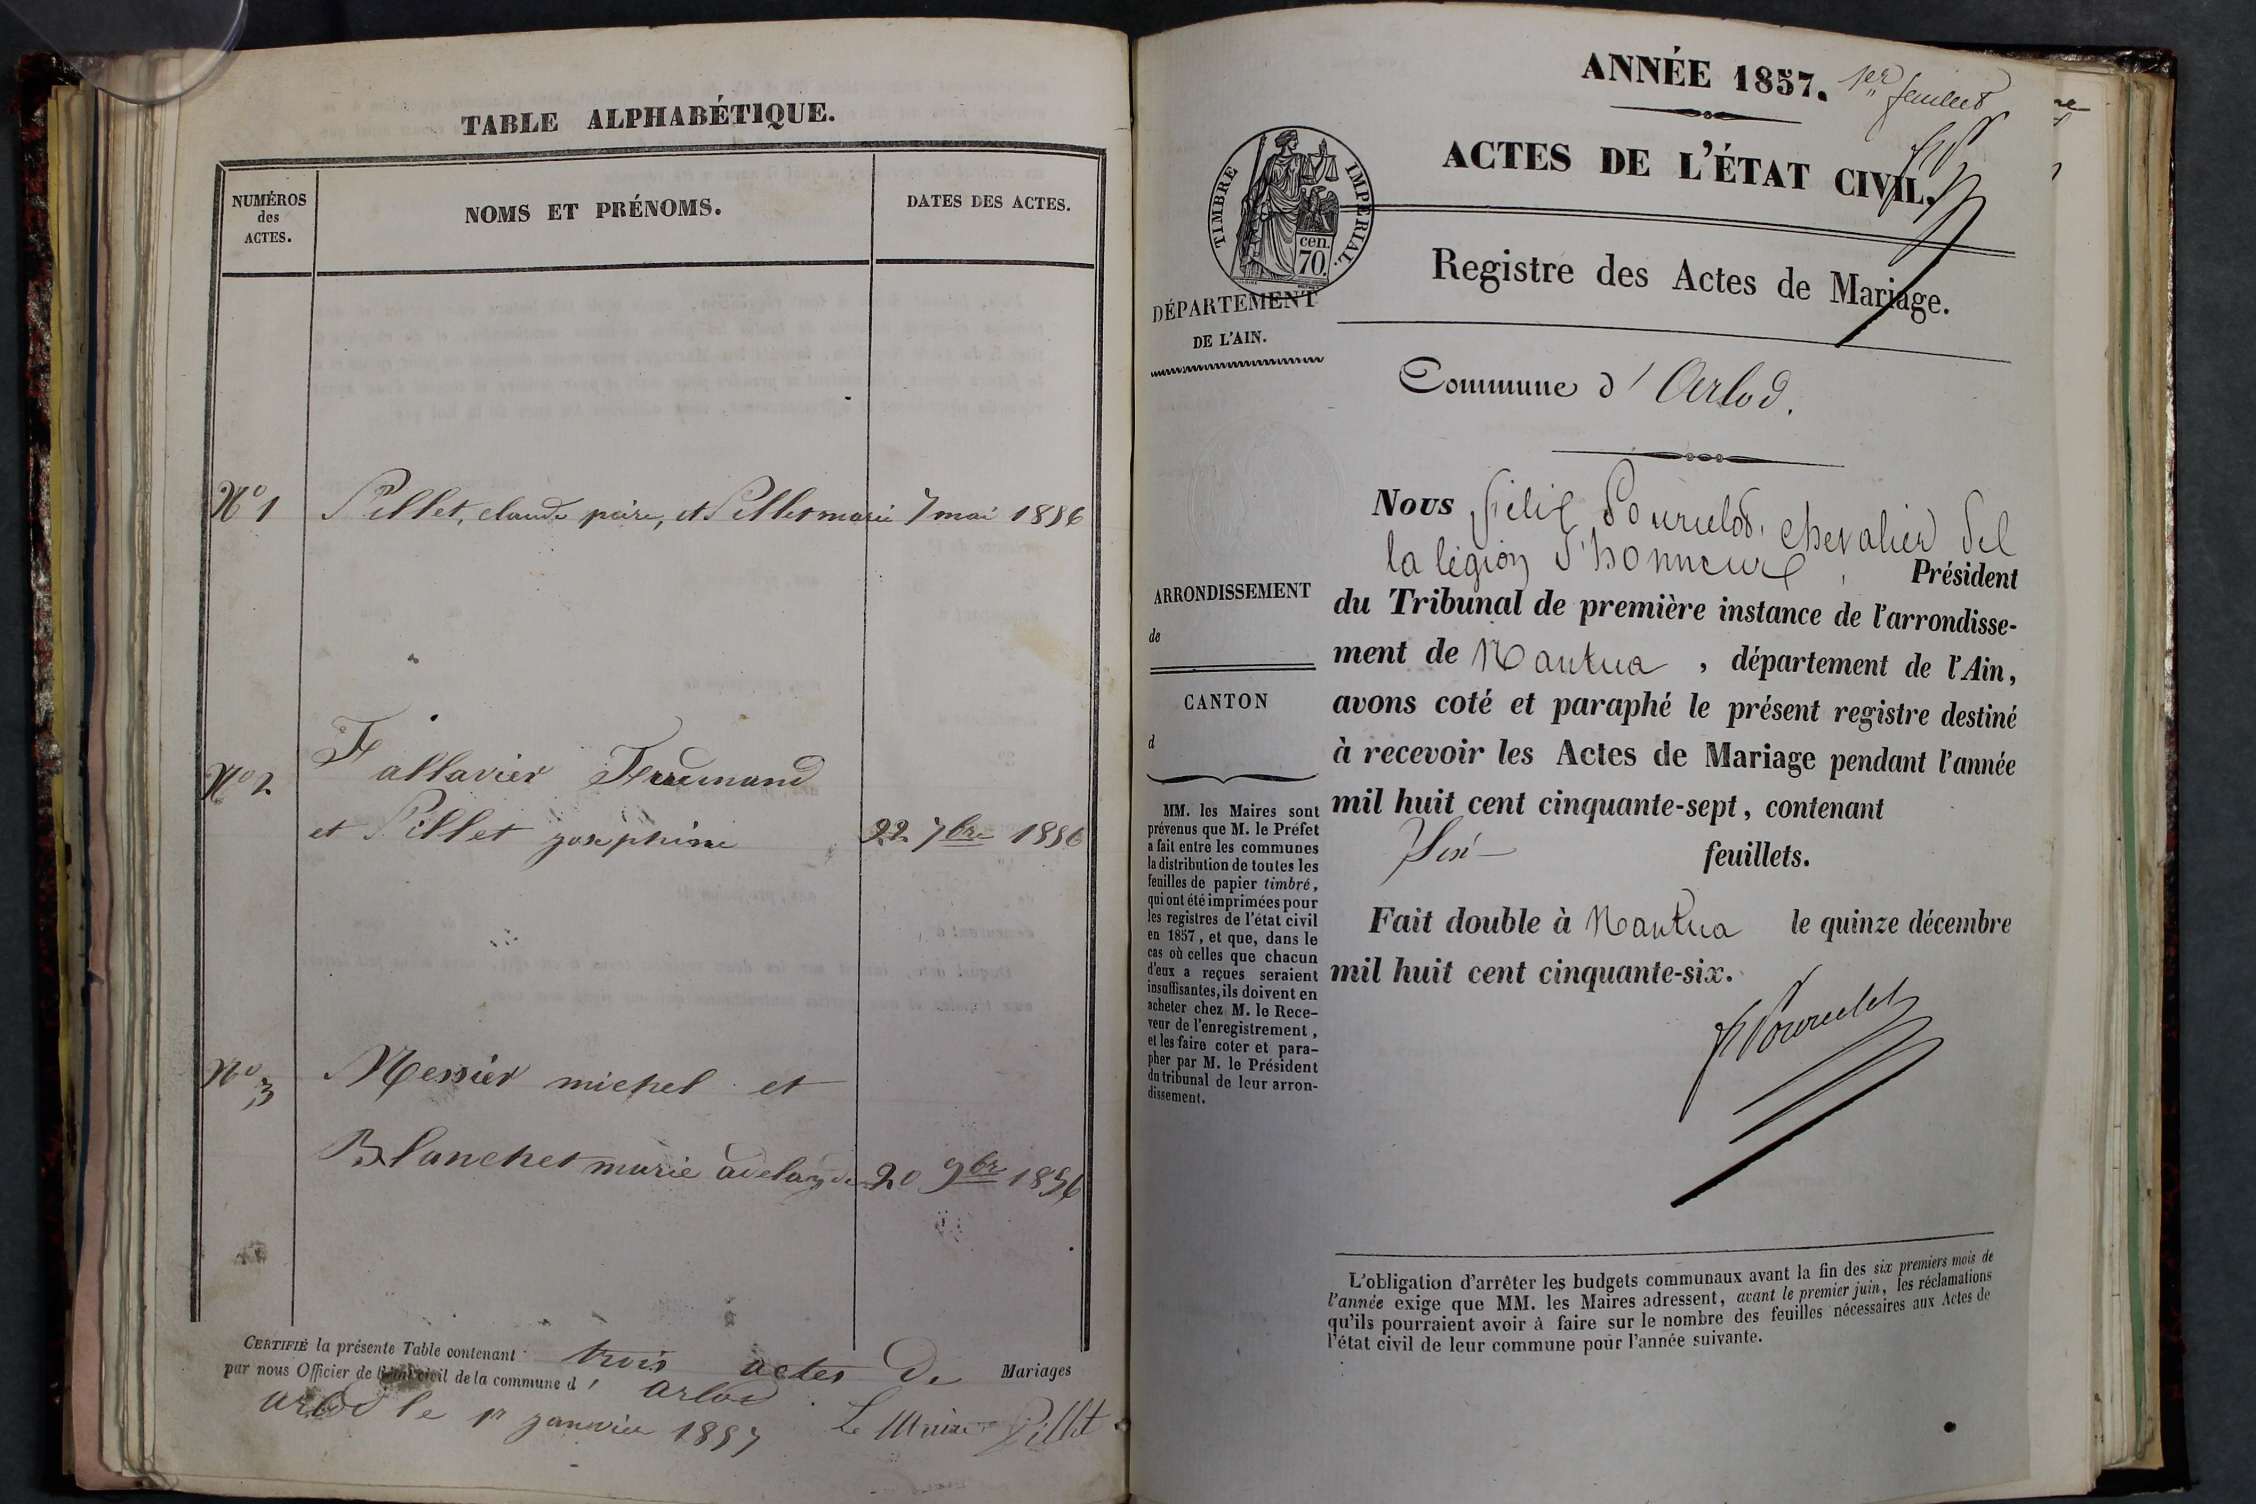 TABLE ALPHABÉTIQUE.
NUMÉROS
des
ACTES.
NOMS ET PRÉNOMS.
DATES DES ACTES.
No 1 Pillet, claude peire, et Pillet marie 7 mai 1856
No 2 Fallavier Ferdinand
et Pillet josephine 22 7bre 1856
No 3 Messier michel et
Blanchet marie adelayde 20 9bre 1856
CERTIFIÉ la présente Table contenant trois actes de Mariages
par nous Officier de l'état civil de la commune d' Arlod
arlod le 1r janvier 1857 Le Maire Pillet
ANNÉE 1857. 1er feuillet
ACTES DE L'ÉTAT CIVIL.
TIMBRE IMPÉRIAL.
cen.
70.
Registre des Actes de Mariage.
DÉPARTEMENT
DE L'AIN.
Commune d'Arlod.
Nous Félix Pourcelot, chevalier de
la légion d'honneur, Président
du Tribunal de première instance de l'arrondisse-
ment de Nantua, département de l'Ain,
avons coté et paraphé le présent registre destiné
à recevoir les Actes de Mariage pendant l'année
mil huit cent cinquante-sept, contenant
Six feuillets.
Fait double à Nantua le quinze décembre
mil huit cent cinquante-six.
ARRONDISSEMENT
de
CANTON
d
MM. les Maires sont
prévenus que M. le Préfet
a fait entre les communes
la distribution de toutes les
feuilles de papier timbré,
qui ont été imprimées pour
les registres de l'état civil
en 1857, et que, dans le
cas où celles que chacun
d'eux a reçues seraient
insuffisantes, ils doivent en
acheter chez M. le Rece-
veur de l'enregistrement,
et les faire coter et para-
pher par M. le Président
du tribunal de leur arron-
dissement.
L'obligation d'arrêter les budgets communaux avant la fin des six premiers mois de
l'année exige que MM. les Maires adressent, avant le premier juin, les réclamations
qu'ils pourraient avoir à faire sur le nombre des feuilles nécessaires aux Actes de
l'état civil de leur commune pour l'année suivante.